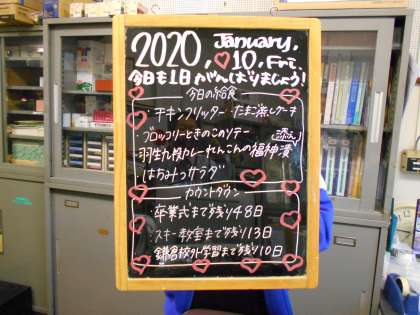 2020, January,
10, Fri.
今日も1日がんばりましょう!
今日の給食
・チキンフリッター・たまご蒸しケーキ
・ブロッコリーときのこのソテー
(添え)
・羽生九校カレーれんこんの福神漬
・はちみつサラダ
カウントダウン
・卒業式まで残り48日
・スキー教室まで残り13日
・鎌倉校外学習まで残り10日